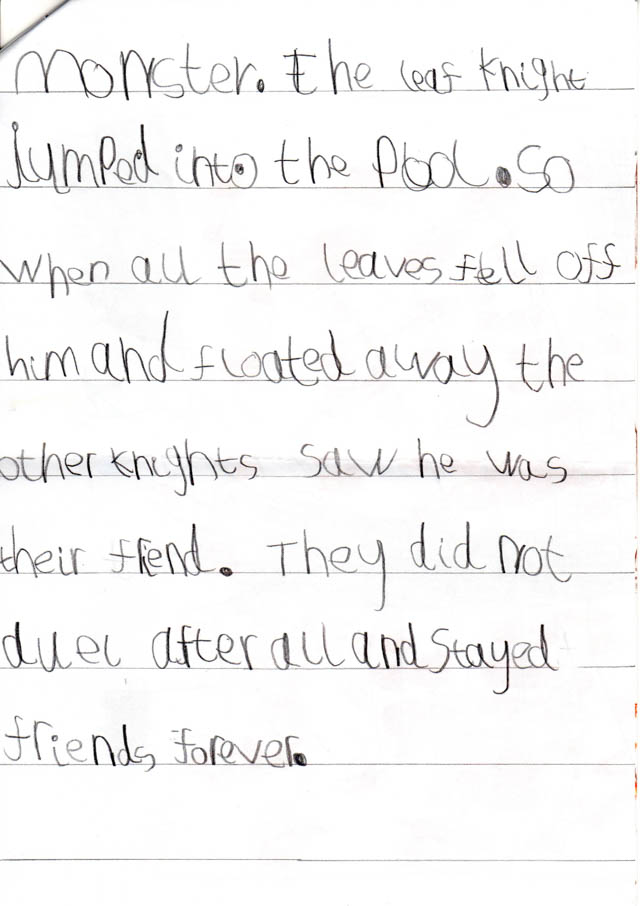 monster. The leaf knight
jumped into the Pool. So
when all the leaves fell off
him and floated away the
other knights saw he was
their friend. They did not
duel after all and stayed
friends forever.